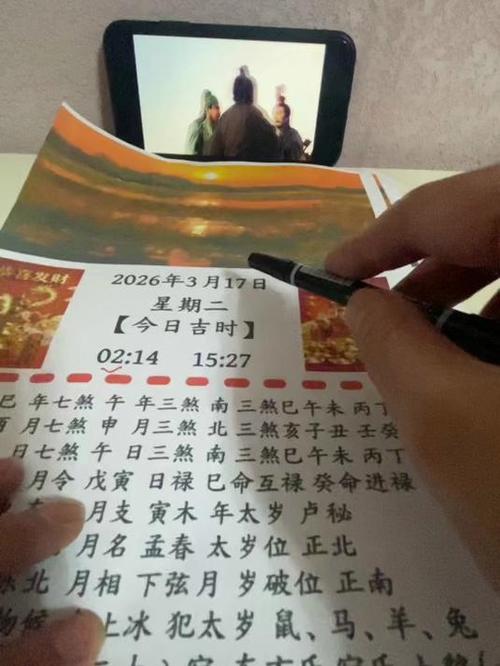 恭喜发财
2026年3月17日
星期二
【今日吉时】
02:14 15:27
巳 年七煞 午 年三煞 南 三煞巳午未 丙丁
酉 月七煞 申 月三煞 北 三煞亥子丑 壬癸
日七煞 午 日三煞 南 三煞巳午未 丙丁
月令 戊寅 日禄 巳命互禄 癸命进禄
月支 寅木 年太岁 卢秘
月名 孟春 太岁位 正北
北 月相 下弦月 岁破位 正南
物候 上冰 犯太岁 鼠、马、羊、兔